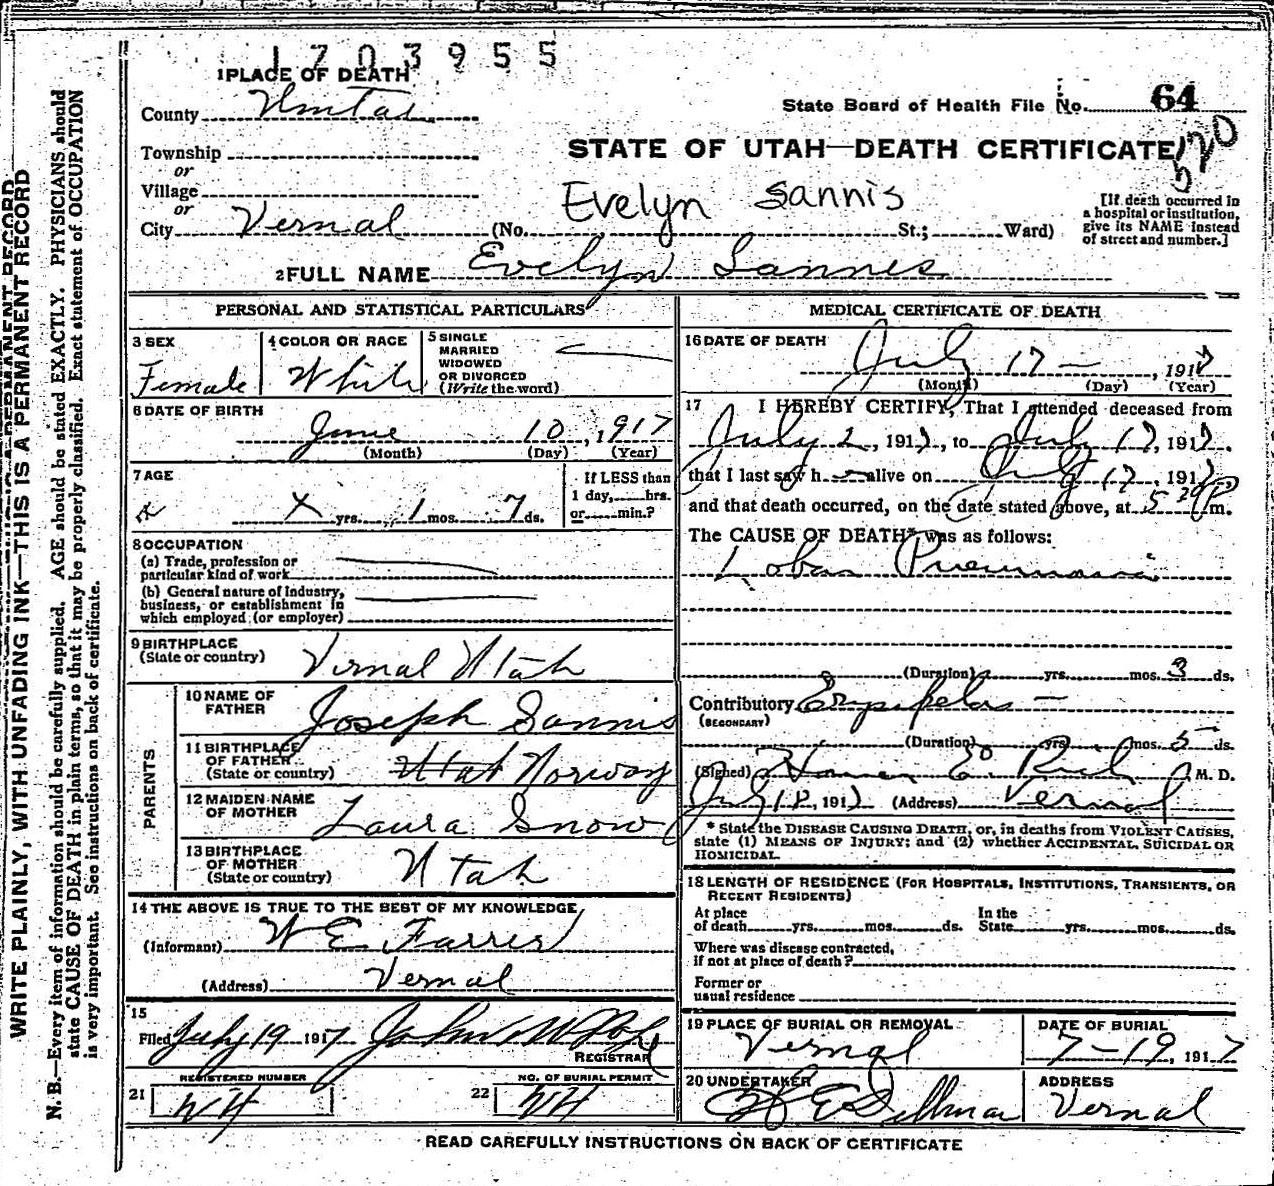 1703955
1 PLACE OF DEATH
County Uintah
State Board of Health File No. 64
Township
or
STATE OF UTAH—DEATH CERTIFICATE
520
Village
or
Evelyn Sannis
City Vernal (No. St.; Ward)
[If death occurred in
a hospital or institution,
give its NAME instead
of street and number.]
2 FULL NAME Evelyn Sannes
PERSONAL AND STATISTICAL PARTICULARS
3 SEX
Female
4 COLOR OR RACE
White
5 SINGLE
MARRIED
WIDOWED
OR DIVORCED
(Write the word)
6 DATE OF BIRTH
June 10, 1917
(Month) (Day) (Year)
7 AGE
x yrs. 1 mos. 7 ds.
If LESS than
1 day, hrs.
or min.?
8 OCCUPATION
(a) Trade, profession or
particular kind of work
(b) General nature of Industry,
business, or establishment in
which employed (or employer)
9 BIRTHPLACE
(State or country) Vernal Utah
PARENTS
10 NAME OF
FATHER Joseph Sannis
11 BIRTHPLACE
OF FATHER
(State or country) Utah Norway
12 MAIDEN NAME
OF MOTHER Laura Snow
13 BIRTHPLACE
OF MOTHER
(State or country) Utah
14 THE ABOVE IS TRUE TO THE BEST OF MY KNOWLEDGE
(Informant) W E
(Address) Vernal
15
Filed July 19 1917 John W
REGISTRAR
REGISTERED NUMBER
21
NO. OF BURIAL PERMIT
22
MEDICAL CERTIFICATE OF DEATH
16 DATE OF DEATH
July 17 — , 1917
(Month) (Day) (Year)
17 I HEREBY CERTIFY, That I attended deceased from
July 2, 1917, to July 17, 1917.
that I last saw h — alive on July 17, 1917
and that death occurred, on the date stated above, at 5 30 P m.
The CAUSE OF DEATH* was as follows:
Lobar Pneumonia
(Duration) yrs. mos. 3 ds.
Contributory Erysipelas —
(SECONDARY)
(Duration) yrs. mos. 5 ds.
(Signed) Homer E. Rich M. D.
July 1917 (Address) Vernal
* State the DISEASE CAUSING DEATH, or, in deaths from VIOLENT CAUSES,
state (1) MEANS OF INJURY; and (2) whether ACCIDENTAL, SUICIDAL OR
HOMICIDAL.
18 LENGTH OF RESIDENCE (FOR HOSPITALS, INSTITUTIONS, TRANSIENTS, OR
RECENT RESIDENTS)
At place
of death yrs. mos. ds.
In the
State yrs. mos. ds.
Where was disease contracted,
if not at place of death?
Former or
usual residence
19 PLACE OF BURIAL OR REMOVAL
Vernal
DATE OF BURIAL
7-19, 1917
20 UNDERTAKER
ADDRESS
Vernal
READ CAREFULLY INSTRUCTIONS ON BACK OF CERTIFICATE
WRITE PLAINLY, WITH UNFADING INK—THIS IS A PERMANENT RECORD
N. B.—Every item of information should be carefully supplied. AGE should be stated EXACTLY. PHYSICIANS should
state CAUSE OF DEATH in plain terms, so that it may be properly classified. Exact statement of OCCUPATION
is very important. See instructions on back of certificate.